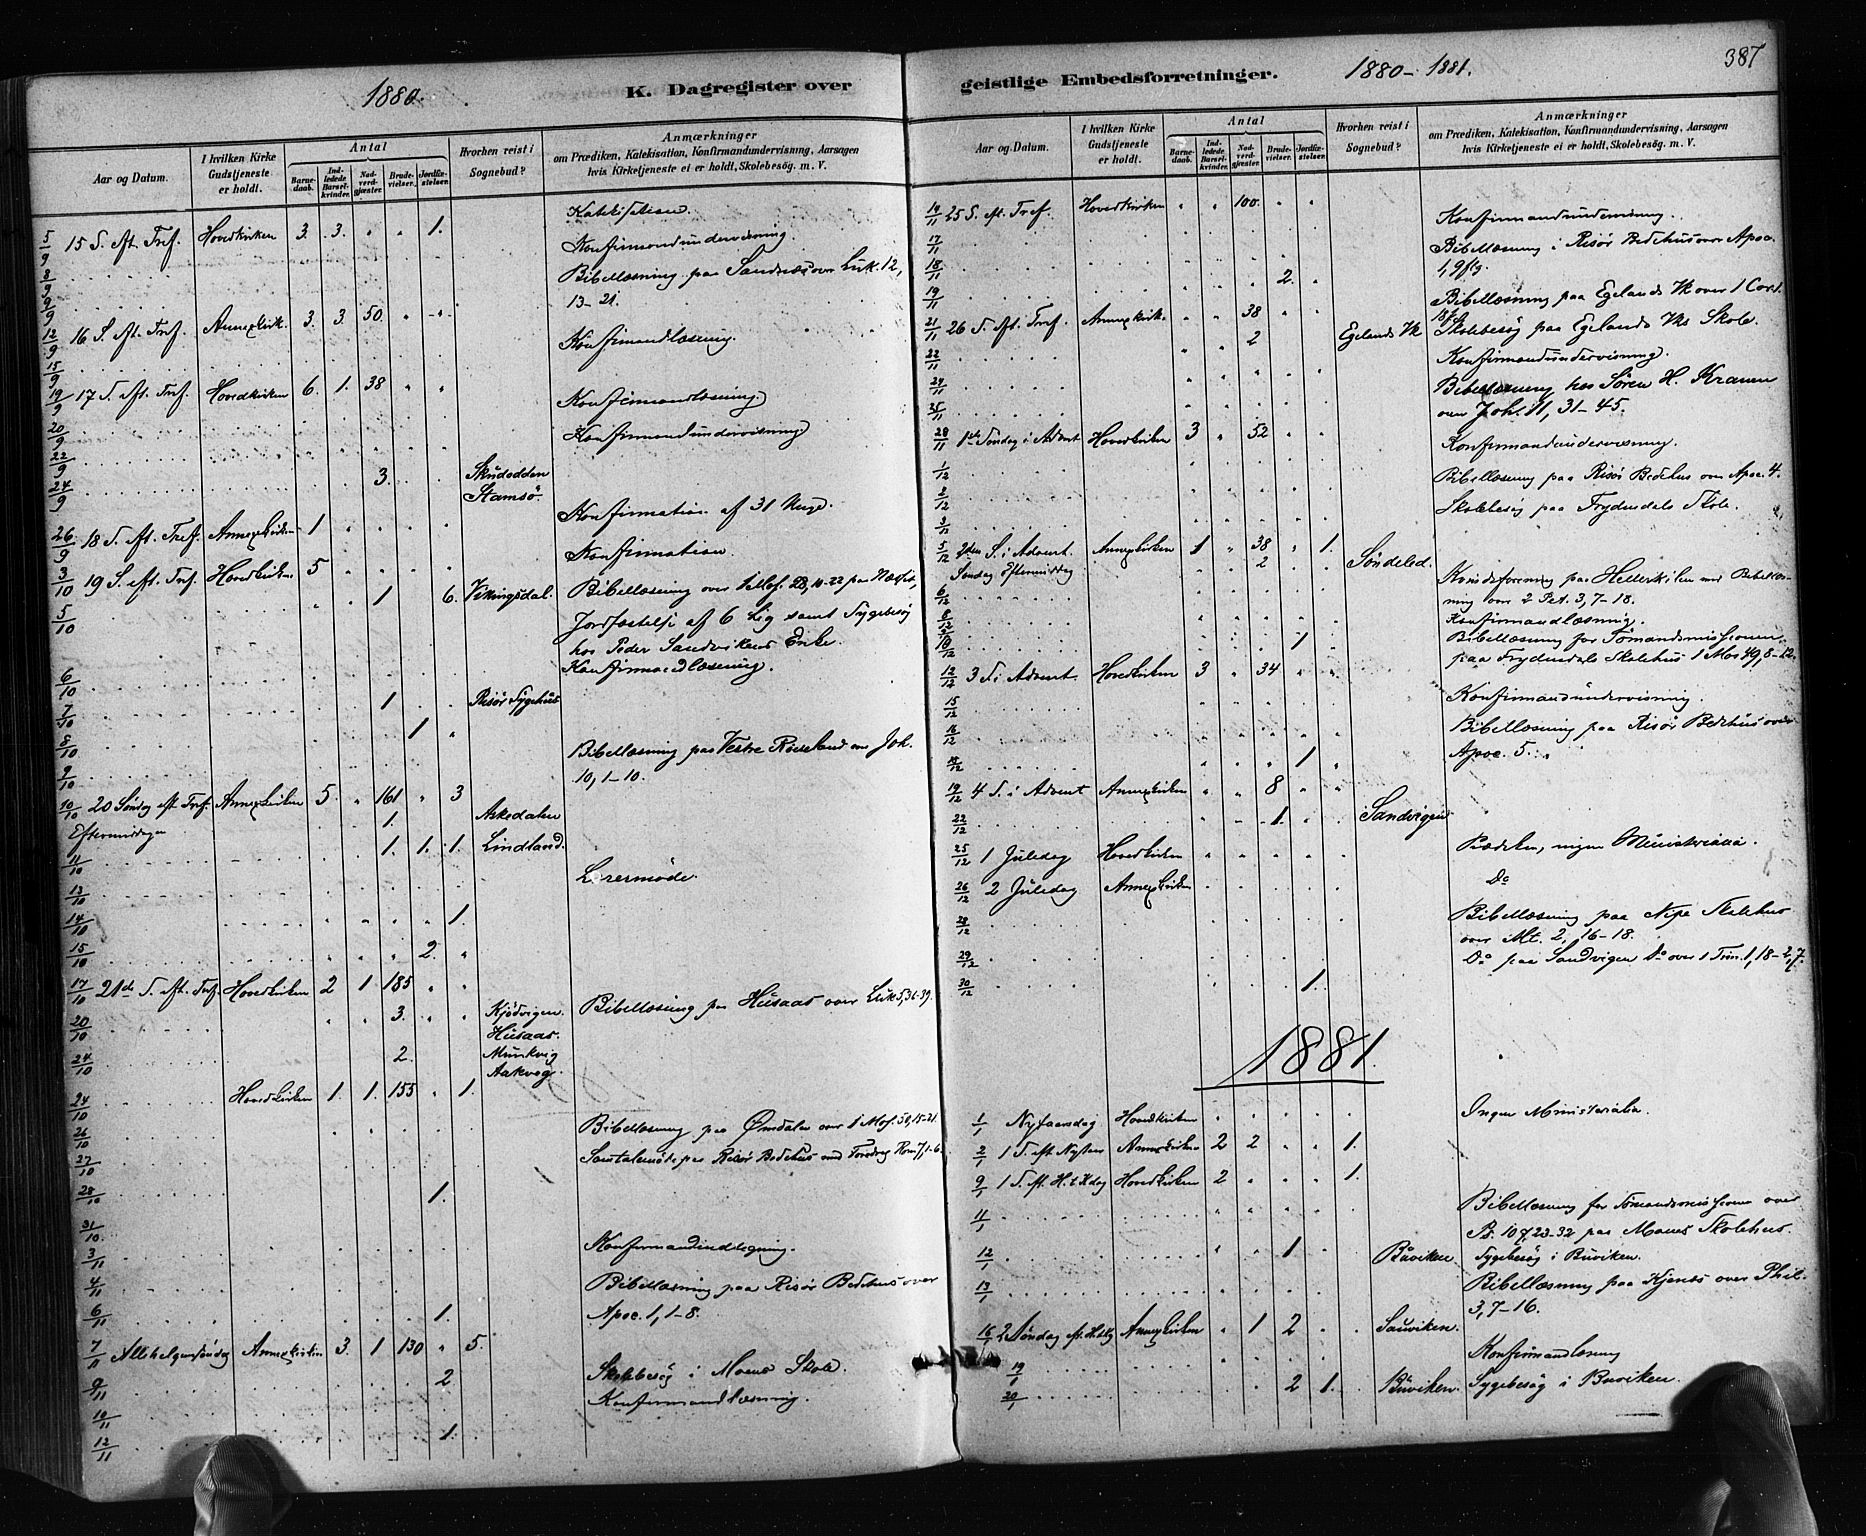 1880.
K. Dagregister over
Aar og Datum.
I hvilken Kirke Gudstjeneste er holdt.
Antal
Barnedaab.
Indledede Barselkvinder.
Nadverdgjæster.
Brudevielser.
Jordfæstelser.
Hvorhen reist i Sognebud?
Anmærkninger
om Prædiken, Katekisation, Konfirmandundervisning, Aarsagen
hvis Kirketjeneste ei er holdt, Skolebesøg. m. V.
Katekisation.
5/9 15 S. eft. Tref. Hovedkirken 3. 3. " " 1.
Konfirmandundervisning.
8/9 Bibellæsning paa Sandnæs over Luk. 12,
9/9 13-21.
12/9 16 S. eft. Tref. Annexkirk. 3. 3. 50. " "
15/9 Konfirmandlæsning.
19/9 17 S. eft. Tref. Hovedkirken 6. 1. 38 " "
20/9 Konfirmandlæsning
22/9 Konfirmandundervisning
24/9 3. Skudodden
Stamsø
Konfirmation af 31 Unge.
26/9 18 S. eft. Tref. Annexkirken 1 " " " "
3/10 19 S. eft. Tref. Hovedkirke. 5 " " " " Konfirmation.
5/10 1 6. Vikingsdal. Bibellæsning over 28, 10-22 paa
Jordfæstelse af 6 Lig samt Sygebesøg
hos Peder Sandvikens Enke.
6/10 Konfirmandlæsning.
7/10 1 Risør Sygehus
8/10 1 "
9/10 Bibellæsning paa Vestre Røiseland over Joh.
10, 1-10.
10/10 20 Søndag eft. Tref. Annexkirken 5. " 161 " 3
Eftermiddagen 1. Askedalen
11/10 1. 1. 1. Lindland.
13/10 Lærermøde.
14/10 1.
15/10 2. "
17/10 21de S. eft. Tref. Hovedkirken 2 1 185 " "
20/10 3. " " Kjødvigen. Bibellæsning paa Husaas over Luk 5, 36-39.
Husaas.
24/10 2. Munkvig
Aakvog.
24/10 Hovedkirken 1. 1. 155 " 1.
26/10 Bibellæsning paa Ømdalen over 1 Mos. 50, 15-21.
27/10 Samtalemøde paa Risør Bedehus med Foredrag Rom 7, 1-6.
28/10 1.
31/10.
3/11 Konfirmandindlægning.
4/11 Bibellæsning paa Risør Bedehus over
6/11 1. Apoc. 1, 1-8.
7/11 Allehelgenssøndag Annexkirken 3. 1 130 " 5.
9/11 2 Skolebesøg i Moens Skole.
10/11 Konfirmandlæsning.
12/11 1.
geistlige Embedsforretninger.
1880-1881.
387
Aar og Datum.
I hvilken Kirke Gudstjeneste er holdt.
Antal
Barnedaab.
Indledede Barselkvinder.
Nadverdgjæster.
Brudevielser.
Jordfæstelser.
Hvorhen reist i Sognebud?
Anmærkninger
om Prædiken, Katekisation, Konfirmandundervisning, Aarsagen
hvis Kirketjeneste ei er holdt, Skolebesøg. m. V.
14/11 25 S. eft. Tref. Hovedkirken " " 100. " "
17/11 Konfirmandundervisning.
18/11 Bibellæsning i Risør Bedehus over Apoc.
19/11 2. 1, 9 flg.
Bibellæsning paa Egelands Vk over 1 Cor 1.
21/11 26 S. eft. Tref. Annexkirk. " " 38 " "
2 Egelands Vk Skolebesøg paa Egelands Vks Skole.
22/11 Konfirmandundervisning.
24/11 Bibellæsning hos Søren H. Kranen
25/11 over Joh. 11, 31-45.
28/11 1ste Søndag i Advent Hovedkirken 3 " 52 " "
Konfirmandundervisning.
1/12
2/12 Bibellæsning paa Risør Bedehus over Apoc. 4.
3/12 Skolebesøg paa Frydendals Skole.
5/12 2den S. i Advent. Annexkirken 1 " 38 " 1.
Søndag Eftermiddag 2 Søndeled.
6/12 Kvindeforening paa Hellerskilen med Bibellæs-
ning over 2 Pet. 3, 7-18.
8/12 Konfirmandlæsning.
10/12 1 Bibellæsning for Sømandsmissionen
paa Frydendals Skolehus 1 Mos 49, 8-12.
12/12 3 S. i Advent. Hovedkirken 3 " 34 " "
15/12 Konfirmandundervisning.
16/12 Bibellæsning paa Risør Bedehus over
1 Apoc. 5.
19/12 4 S. i Advent Annexkirken " " 8 " "
22/12 1. Sandvigen
25/12 1 Juledag Hovedkirken Prædiken, ingen Ministerialia.
26/12 2 Juledag Annexkirken Do
28/12 Bibellæsning paa Nipe Skolehus
over Mt. 2, 16-18.
29/12 Do paa Sandvigen Do over 1 Tim. 1, 18-2, 7.
30/12 1.
1881.
1/1 Nytaarsdag Hovedkirken Ingen Ministerialia.
2/1 1 S. eft. Nytaar Annexkirken 2 2 " " 1.
9/1 1 S. eft. H. 3 K dag Hovedkirken 2 " " " 1.
11/1 Bibellæsning for Sømandsmissionen over
Ps. 107, 23-32 paa Moens Skolehus.
12/1 1 Buviken Sygebesøg i Buviken.
13/1 Bibellæsning paa Kjenes over Phil.
3, 7-16.
16/1 2 Søndag eft. Annexkirken " 1 2 Sauviken.
19/1 Konfirmandlæsning
20/1 2 1. Buviken. Sygebesøg i Buviken.